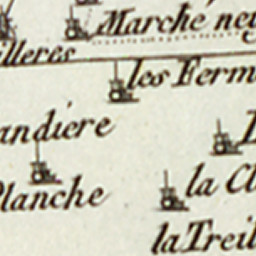 Marché ne
illeres
les Ferm
andiere
Planche
la Cl
la Treil